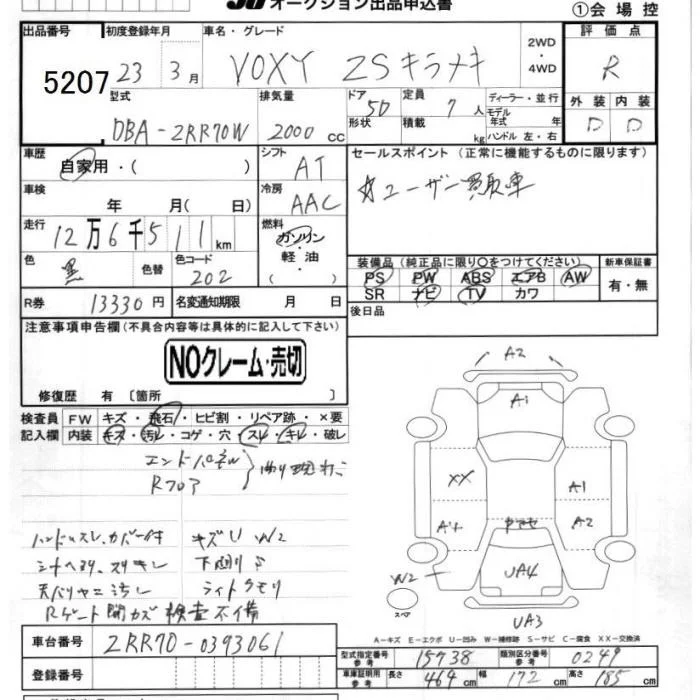 オークション出品申込書 ①会場控
出品番号 初度登録年月 車名・グレード 評価点
5207 23 3月 VOXY ZSキラメキ 2WD・4WD R
型式 排気量 ドア 5D 定員 7人 ディーラー・並行 外装 内装
DBA-ZRR70W 2000cc 形状 積載 kg モデル年式 年式 ハンドル 左・右 D D
車歴 シフト セールスポイント (正常に機能するものに限ります)
自家用・( ) AT ☆ユーザー買取車
車検 年 月(日) 冷房 AAC
走行 12万6千511km 燃料 ガソリン・軽油・( )
色 黒 色替 色コード 202
装備品 (純正品に限り○をつけてください) 新車保証書
PS PW ABS エアB AW 有・無
SR ナビ TV カワ
R券 13330円 名変通知期限 月 日 後日品
注意事項申告欄(不具合内容等は具体的に記入して下さい)
NOクレーム・売切
修復歴 有〔箇所 〕
検査員 FW キズ・飛石・ヒビ割・リペア跡・×要
記入欄 内装 キズ・汚レ・コゲ・穴・スレ・キレ・破レ
エンドパネル
Rフロア
ハンドルスレ、カバー付 キズU W2
シートヘタリ、スリキレ 下廻りサビ
天バリヤニ汚レ ライトクモリ
Rゲート開カズ 検査不備
A2
A1
XX A1
A2
UA4
W2
スペア
UA3
A-キズ E-エクボ U-凹み W-補修跡 S-サビ C-腐食 XX-交換済
車台番号 ZRR70-0393061
登録番号
型式指定番号 参考 15738 類別区分番号 参考 0249
車庫証明用 参考 長さ 464cm 幅 172cm 高さ 185cm